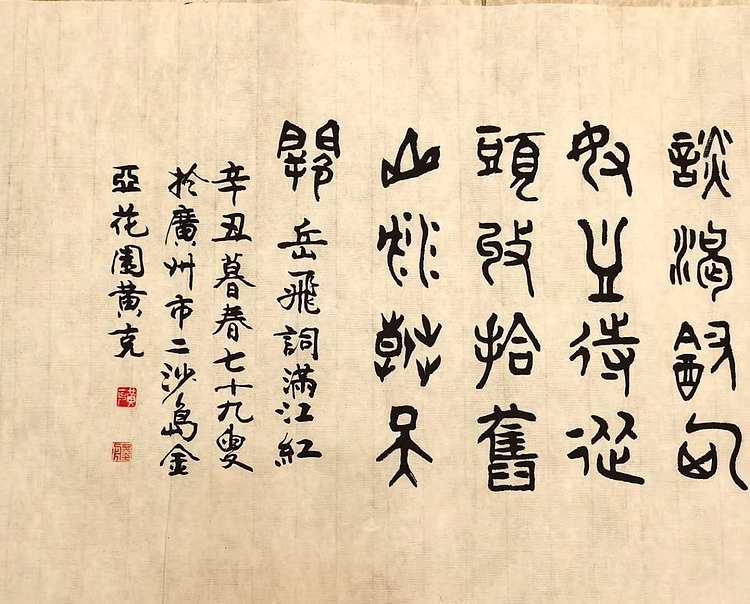 談渴飲匈
奴血待從
頭收拾舊
山河朝天
闕 岳飛詞滿江紅
辛丑暮春七十九叟
扵廣州市二沙島金
亞花園黄克